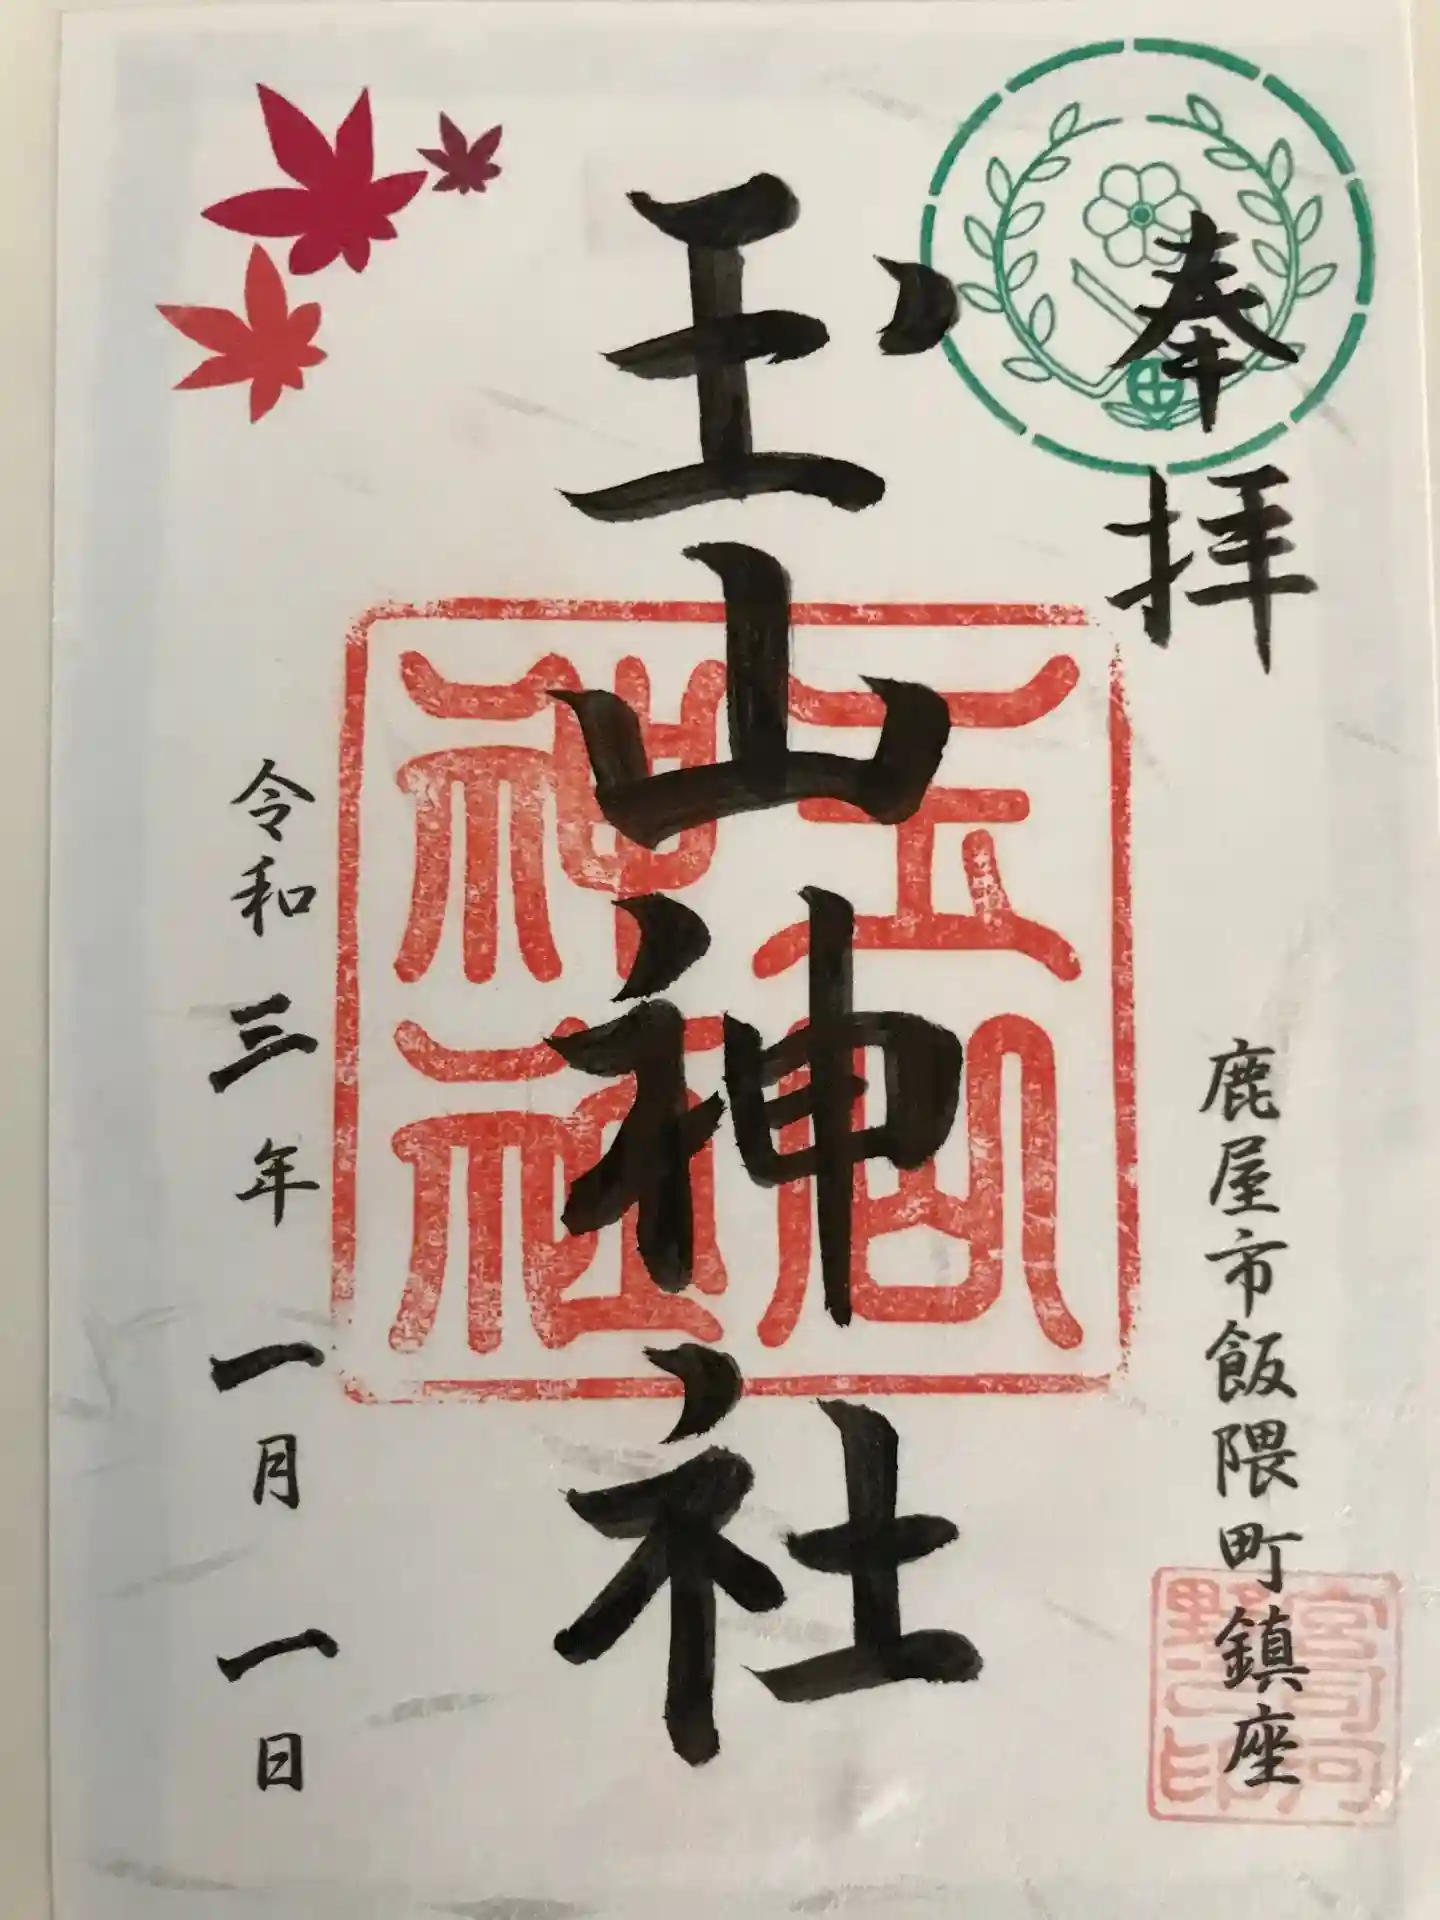 奉拝
鹿屋市飯隈町鎮座
玉山神社
玉山神社
令和三年一月一日
宮司河野之印